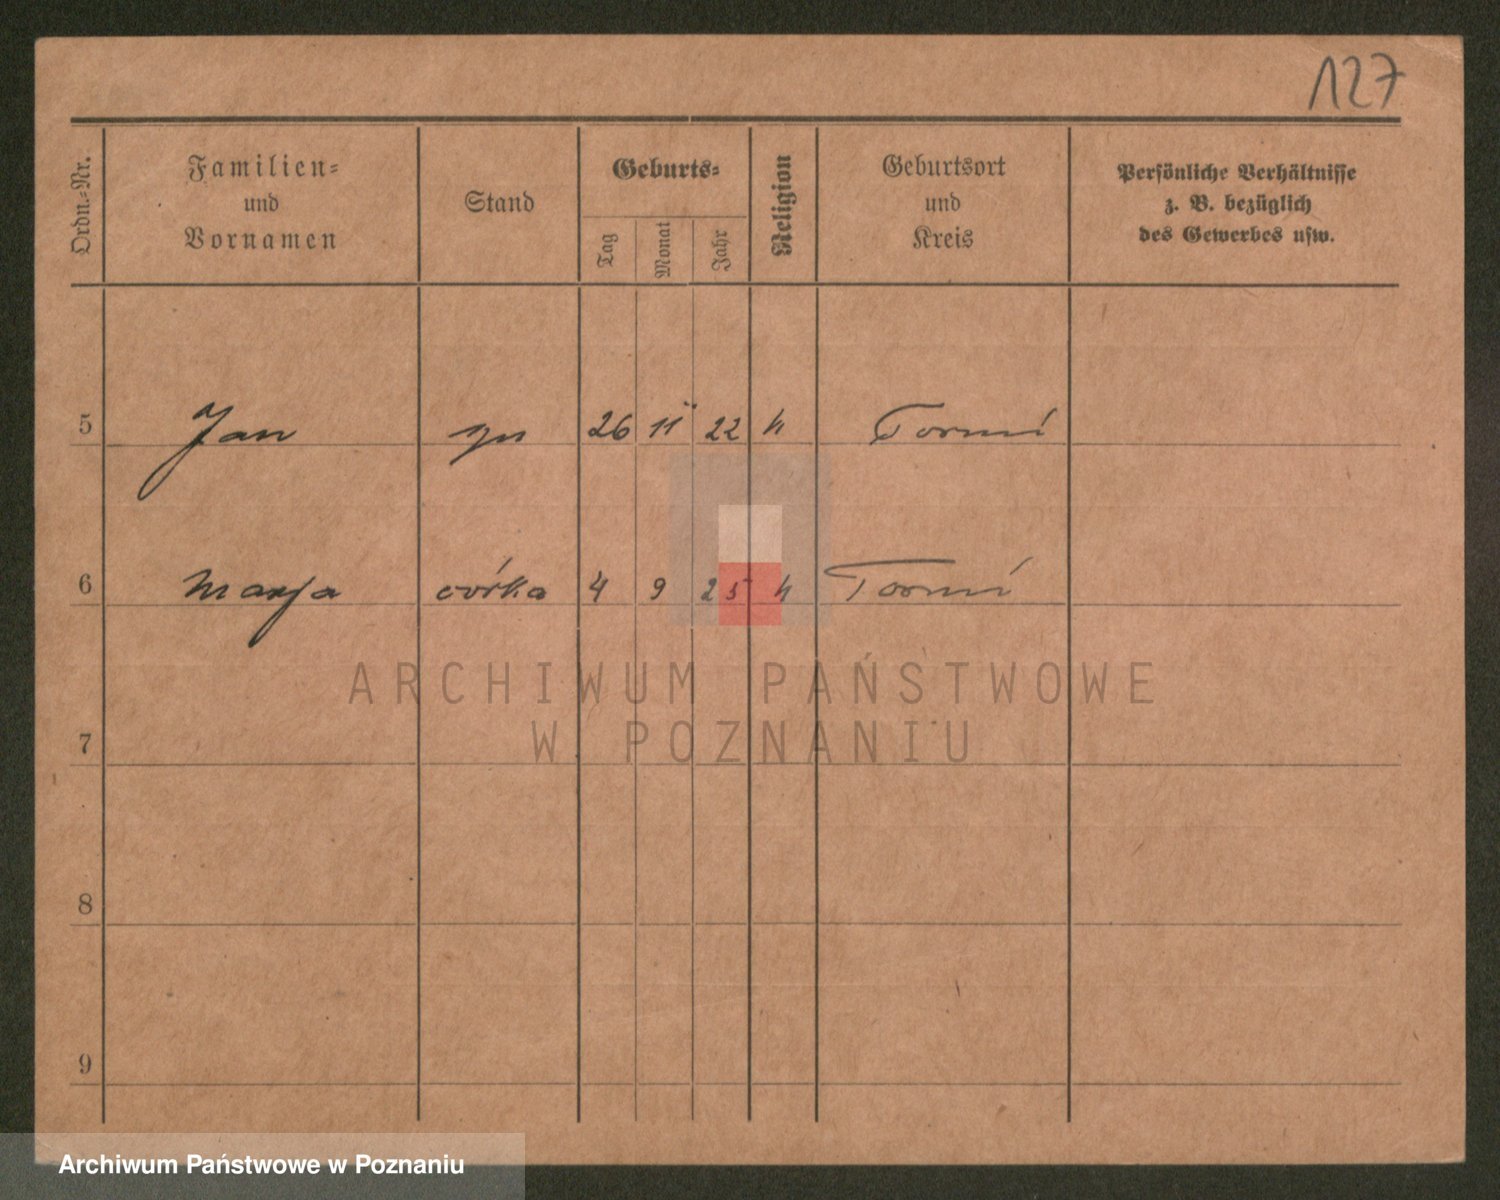 127
Ordn.-Nr.
Familien-
und
Vornamen
Stand
Geburts-
Tag
Monat
Jahr
Religion
Geburtsort
und
Kreis
Persönliche Verhältnisse
z. B. bezüglich
des Gewerbes usw.
5 Jan syn 26 11 22 k Toruń
6 Marja córka 4 9 25 k Toruń
ARCHIWUM PAŃSTWOWE
W POZNANIU
7
8
9
Archiwum Państwowe w Poznaniu